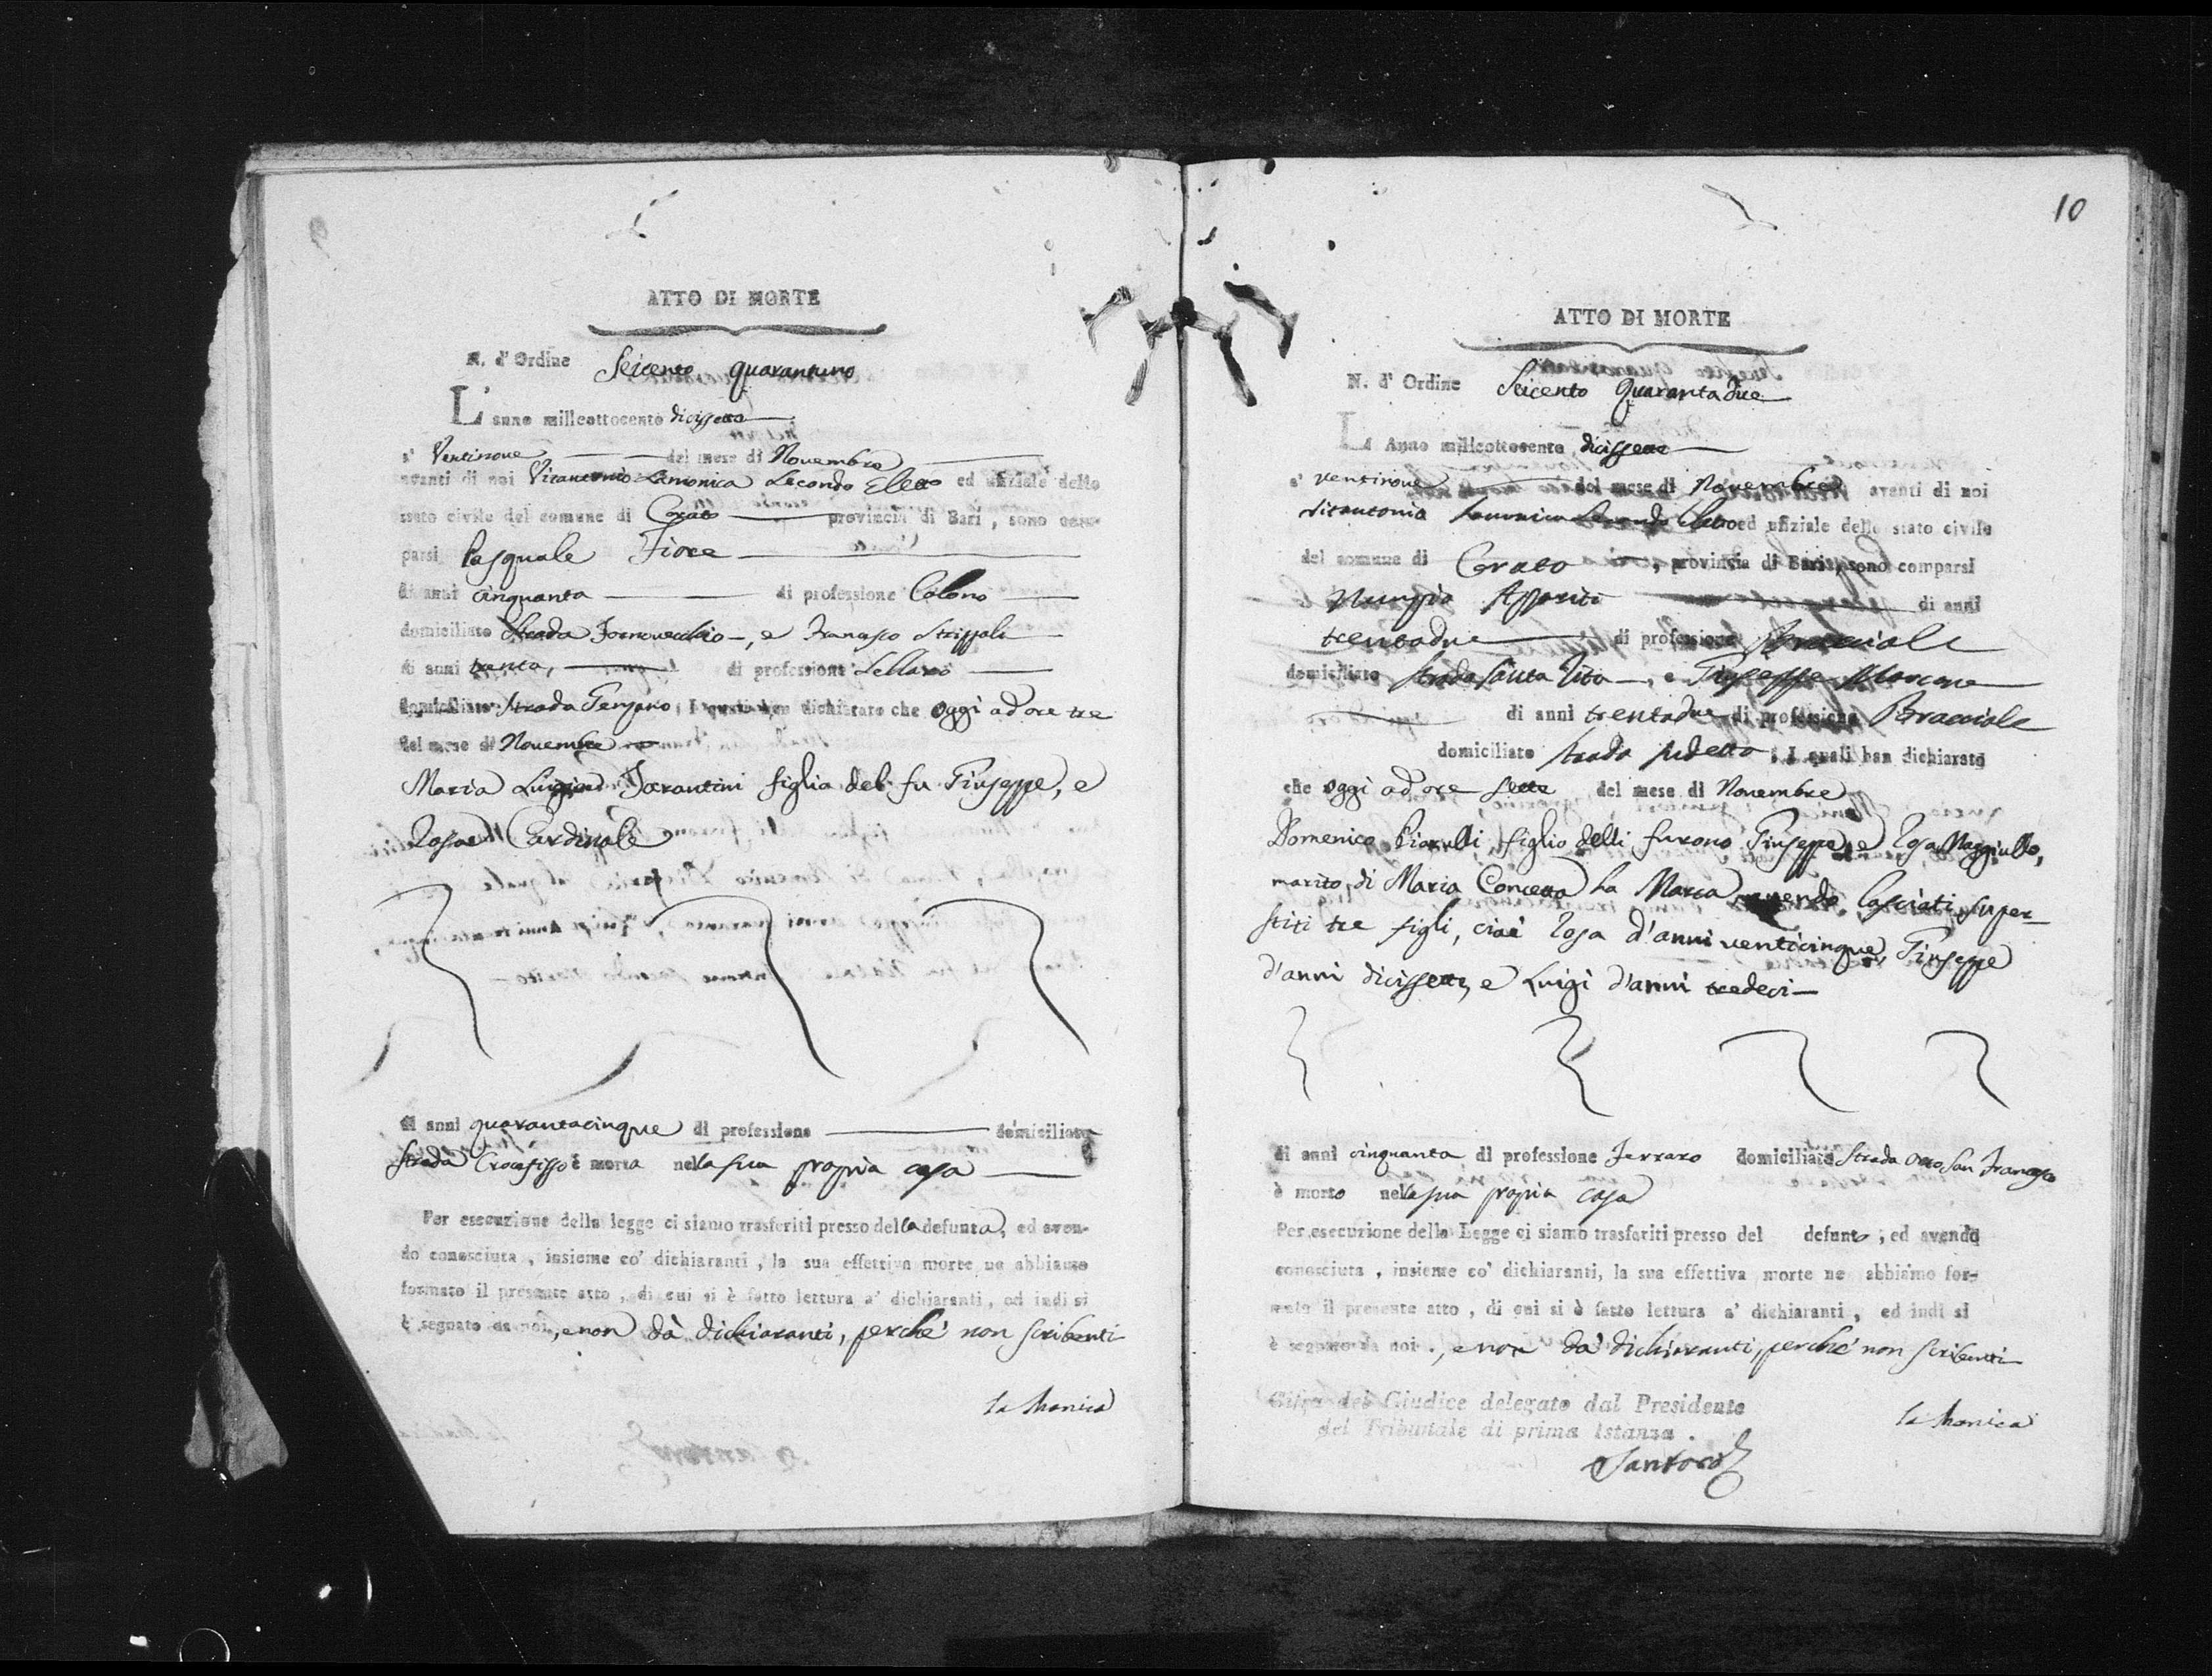 ATTO DI MORTE
N. d' Ordine Seicento quarantuno
L' anno milleottocento dicissette
a' Ventinove del mese di Novembre
avanti di noi Vitantonio Lamonica Secondo Eletto ed ufiziale dello
stato civile del comune di Corato provincia di Bari, sono com-
parsi Pasquale Fiore
di anni cinquanta di professione Colono
domiciliato Strada Fornovecchio, e Francesco Strippoli
di anni trenta, di professione Sellaro
domiciliato Strada, I quali han dichiarato che oggi ad ore tre
del mese di Novembre
Maria Luigia Tarantini figlia del fu Giuseppe, e
Rosa Cardinale
di anni quarantacinque di professione domiciliata
Strada Crocifisso è morta nella sua propria casa
Per esecuzione della legge ci siamo trasferiti presso della defunta, ed aven-
do conosciuta, insieme co' dichiaranti, la sua effettiva morte ne abbiamo
formato il presente atto, di cui si è fatto lettura a' dichiaranti, ed indi si
è segnato da noi, e non dà dichiaranti, perche' non scribenti
la Monica
10
ATTO DI MORTE
N. d' Ordine Seicento Quarantadue
L' Anno milleottocento dicissette
a' ventinove del mese di Novembre avanti di noi
Vitantonio Lamonica Secondo Eletto ed ufiziale dello stato civile
del comune di Corato, provincia di Bari, sono comparsi
Nunzio di anni
trentadue di professione Bracciale
domiciliato Strada Santa Vito, e Giuseppe Marcone
di anni trentadue di professione Bracciale
domiciliato strada sudetta; I quali han dichiarato
che oggi ad ore sette del mese di Novembre
Domenico Piarulli figlio delli furono Giuseppe, e Rosa Maggiullo,
marito di Maria Concetta La Marca avendo lasciati super-
stiti tre figli, cioè Rosa d'anni venticinque, Giuseppe
d'anni dicissette, e Luigi d'anni tredeci
di anni cinquanta di professione Ferraro domiciliato Strada San Francesco
è morto nella sua propria casa
Per esecuzione della Legge ci siamo trasferiti presso del defunto, ed avendo
conosciuta, insieme co' dichiaranti, la sua effettiva morte ne abbiamo for-
mato il presente atto, di cui si è fatto lettura a' dichiaranti, ed indi si
è segnato da noi, e non dà dichiaranti, perche' non scribenti
Cifra del Giudice delegato dal Presidente
del Tribunale di prima Istanza.
la Monica
Santoro